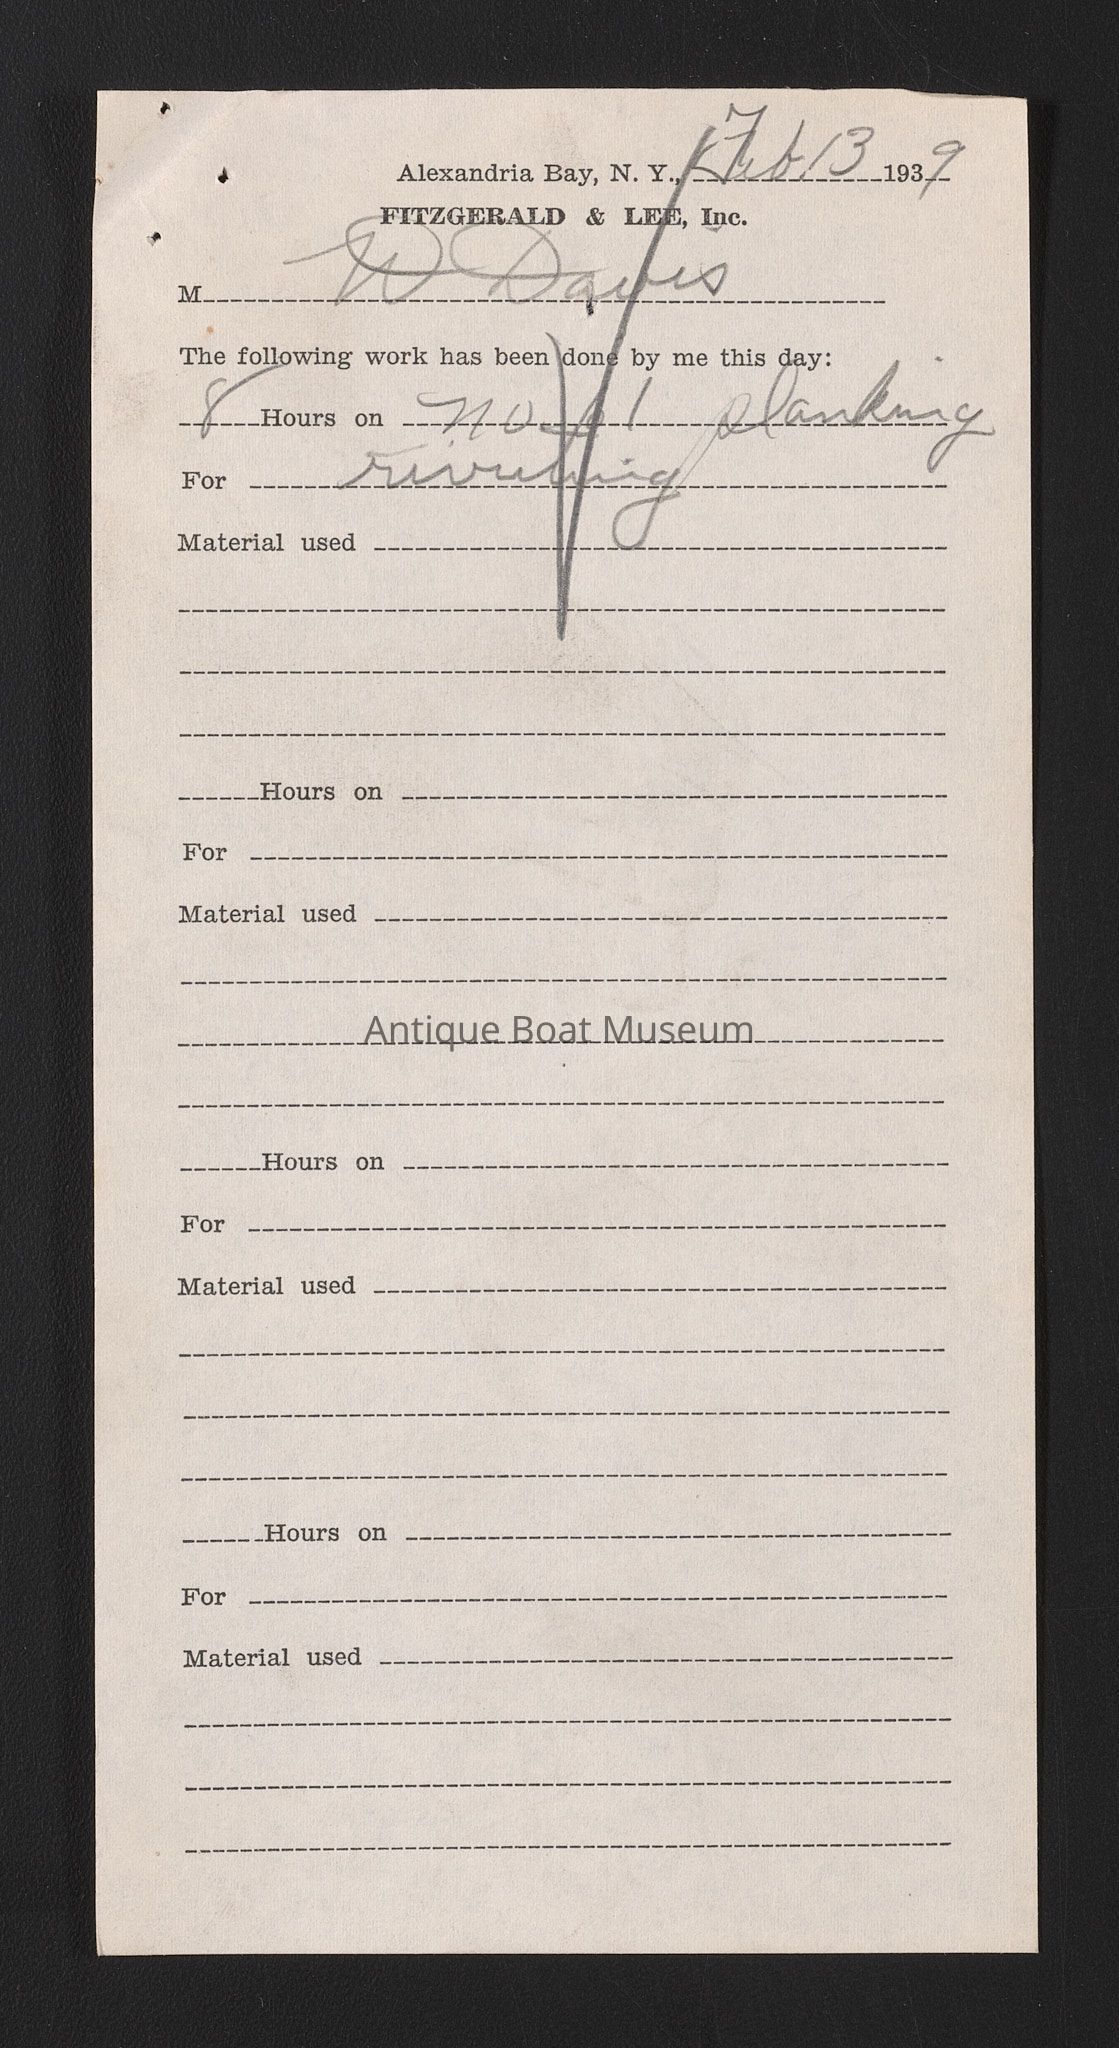 Alexandria Bay, N. Y., Feb 13 1939
FITZGERALD & LEE, Inc.
M W Davis
The following work has been done by me this day:
8 Hours on no 1 planking
For riveting
Material used
Hours on
For
Material used
Antique Boat Museum
Hours on
For
Material used
Hours on
For
Material used